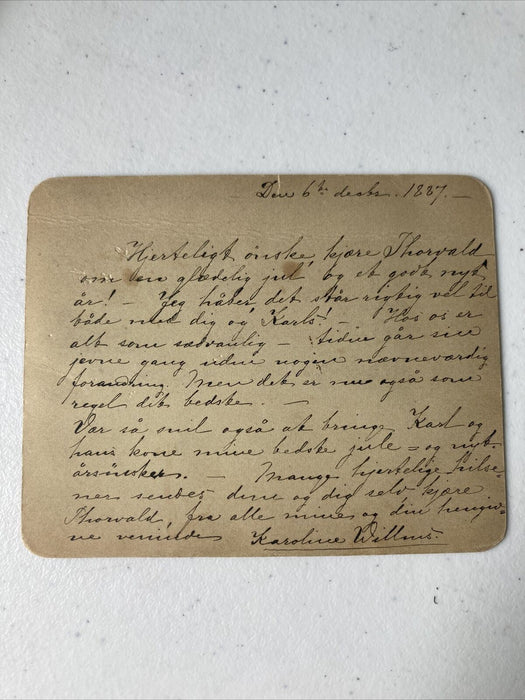 Den 6te decbr. 1887. —
Hjerteligt önske, kjære Thorvald
om en glædelig jul, og et godt nyt
år! — Jeg håber det står rigtig vel til
både med dig og Karls! — Hos os er
alt som sædvanlig — tiden går sin
jevne gang uden nogen nævneværdig
forandring. Men det er nu også som
regel det bedste. —
Vær så snil også at bringe Karl og
hans kone mine bedste jule- og nyt-
årsönsker. — Mange hjertelige hilse-
ner sendes dem og dig selv kjære
Thorvald, fra alle mine og din hengiv-
ne veninde Karoline Willms.